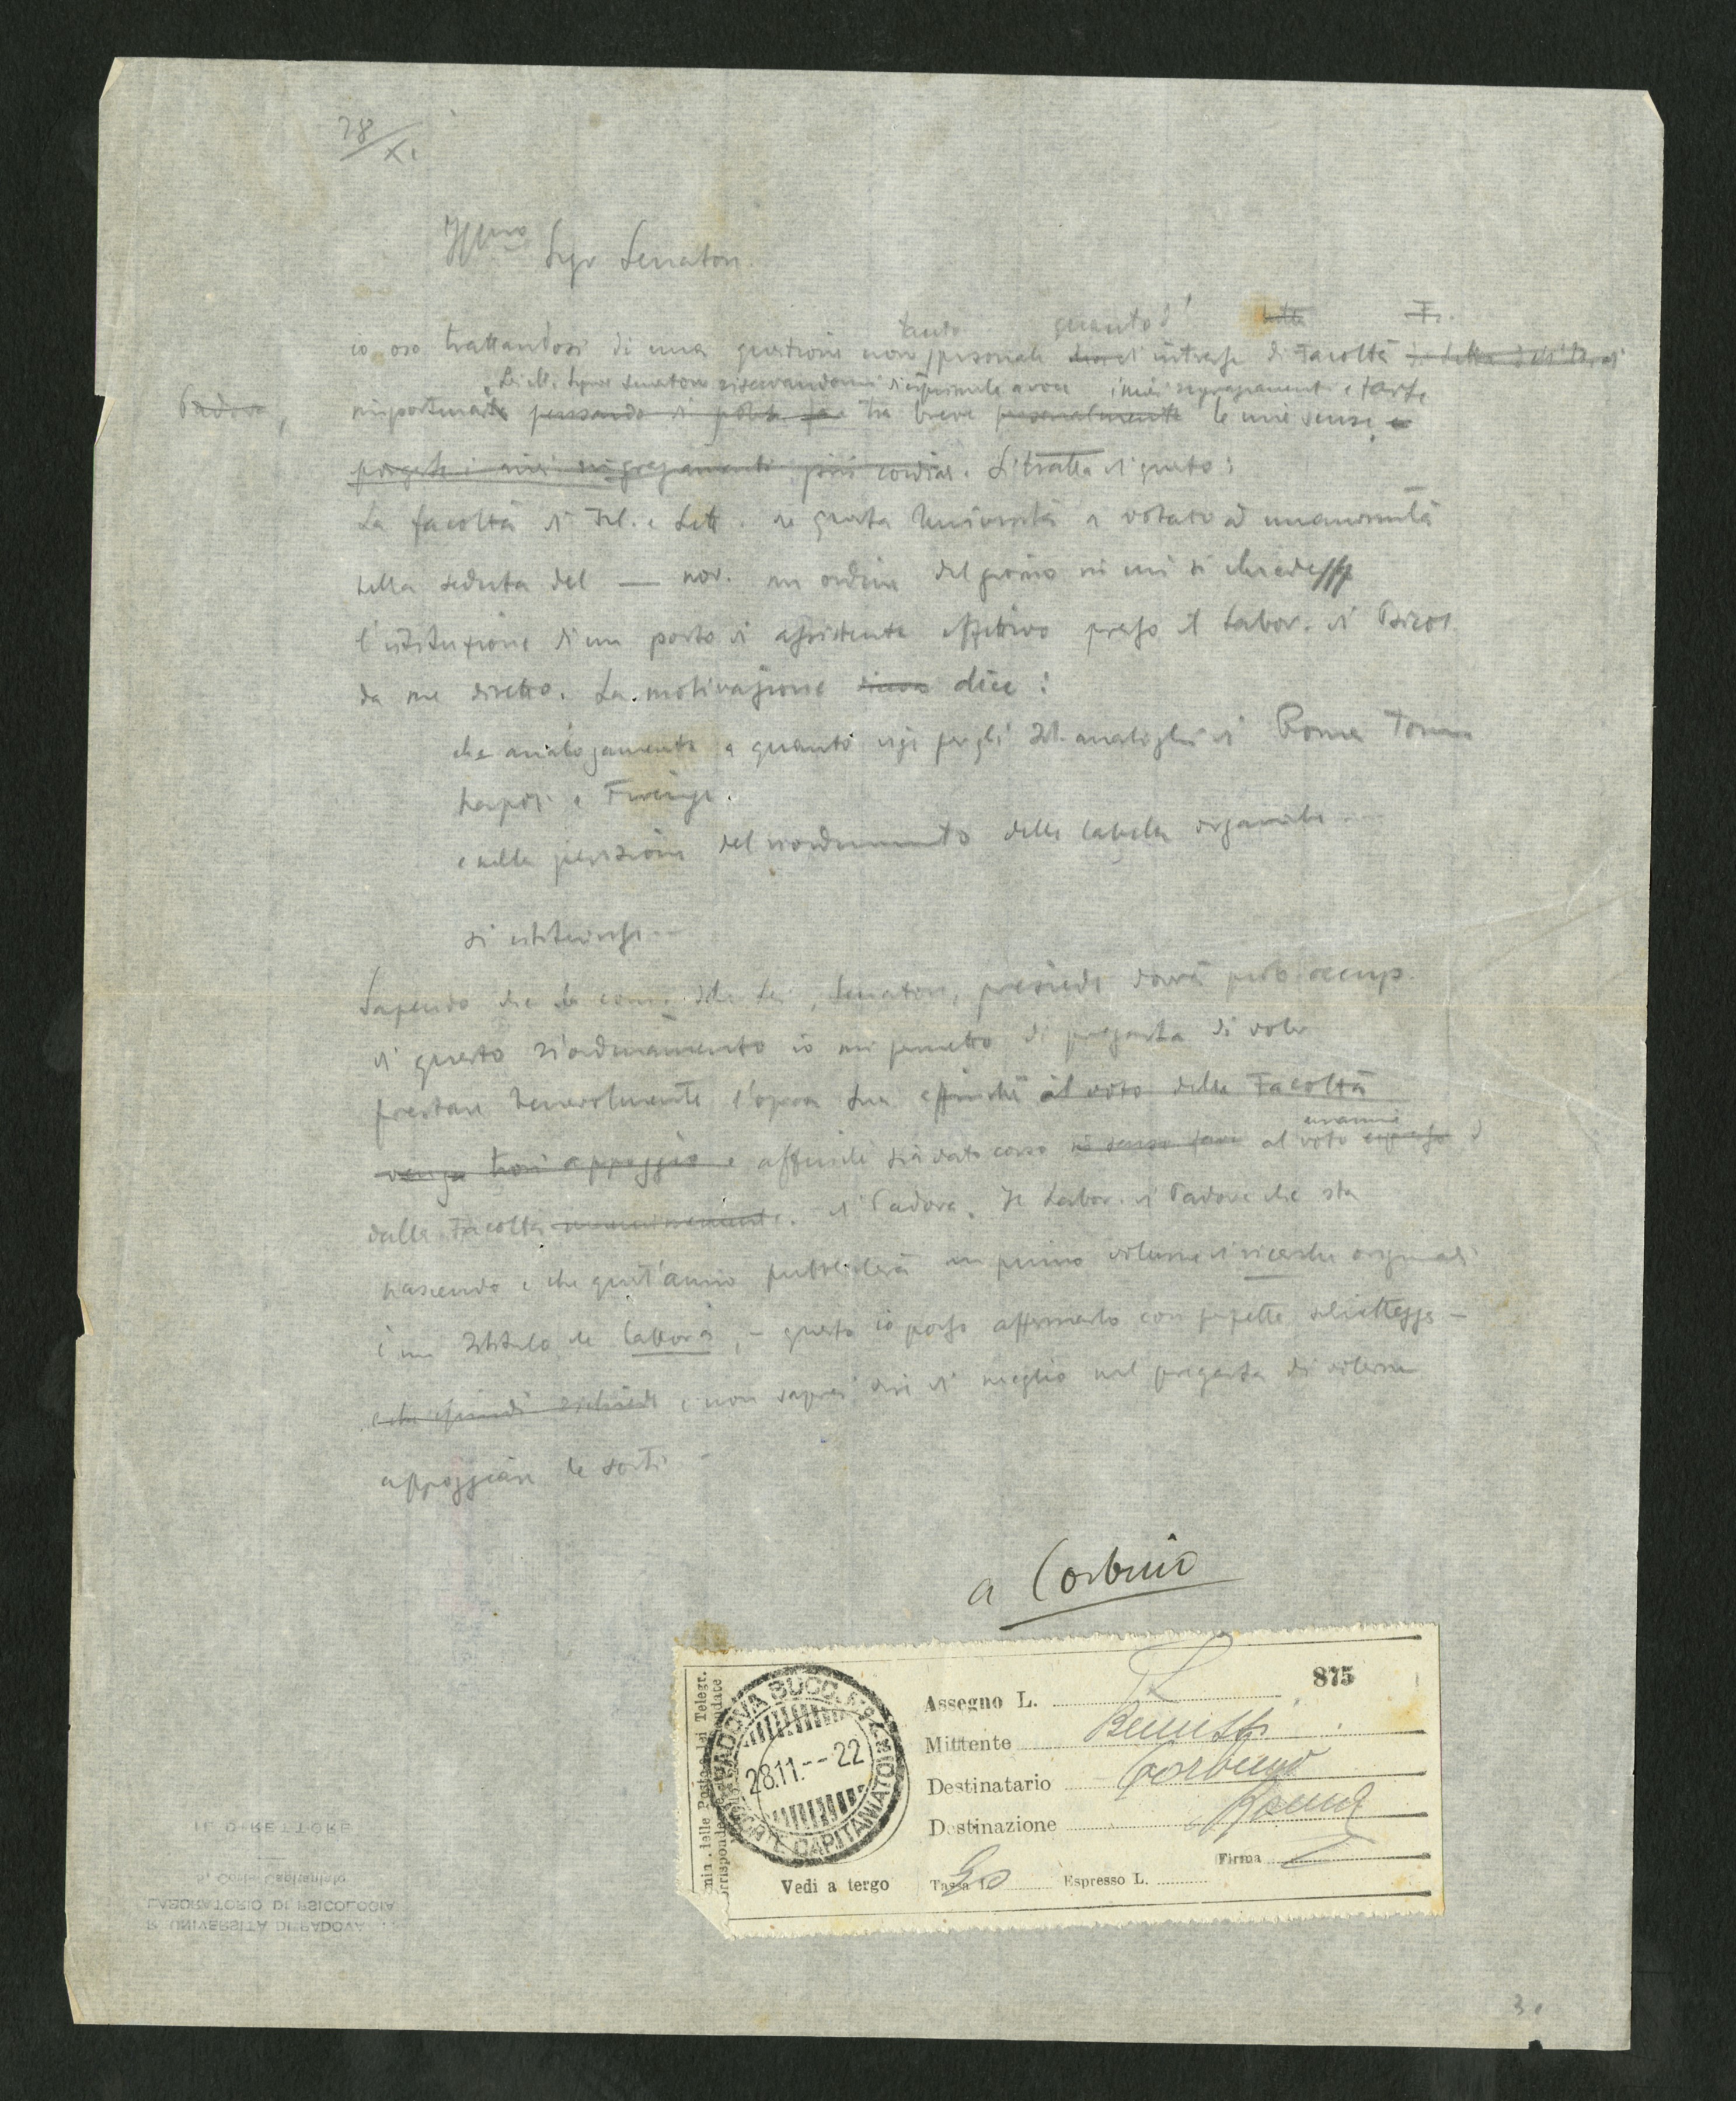 28/XI
Ill.mo Sigr Senatore.
tanto quanto d'
io oso trattandosi di una questione non personale d'interesse di Facoltà
Lei Ill. Signor Senatore riservandomi d'esprimerle a voce i miei ringraziamenti e
Padova,
importunare pensando di poterle tra breve personalmente le mie scuse e
porgerle i miei ringraziamenti più cordiali. Si tratta di questo:
La facoltà di Fil. e Lett. di questa Università a votato ad unanimità
nella seduta del — nov. un ordine del giorno in cui si chiede
l'istituzione di un posto di assistente effettivo presso il Labor. di Psicol.
da me diretto. La motivazione dice:
che analogamente a quanto per gli Ist. analoghi di Roma Torino
Napoli e Firenze.
e nella previsione del riordinamento delle tabelle organiche...
si istituisse...
Sapendo che la com. che Lei, Senatore, presiede dovrà occup.
di questo riordinamento io mi permetto di pregarla di voler
prestare benevolmente l'opera Sua affinché il voto della Facoltà
unanime
venga trovi appoggio e affinché sia dato corso al voto espresso
dalla Facoltà unanimemente. di Padova. Il Labor. di Padova che sta
nascendo e che quest'anno pubblicherà un primo volume di ricerche originali
è un Istituto che lavora, – questo io posso affermarlo con perfetta schiettezza –
e che quindi richiede e non saprei dire di meglio nel pregarla di volerne
appoggiare le sorti –
a Corbino
875
Assegno L.
Mittente Benussi
Destinatario Corbino
Destinazione Roma
Firma
Vedi a tergo Tassa L. 50 Espresso L.
PADOVA SUCC. N. 2
28.11.--22
CORTE CAPITANIATO
IL DIRETTORE
LABORATORIO DI PSICOLOGIA
R. UNIVERSITÀ DI PADOVA
3